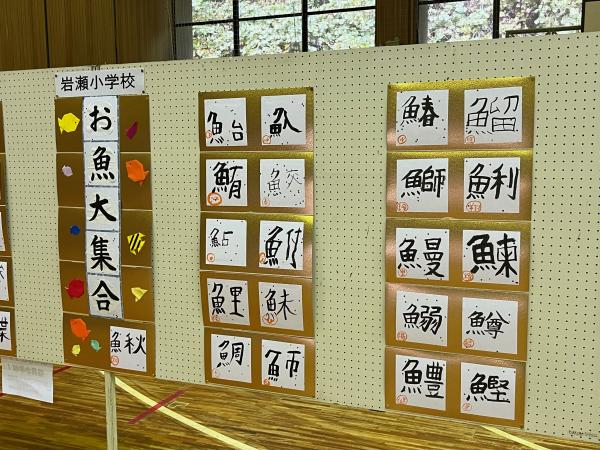 岩瀬小学校
お魚大集合
鰍
鮐 魞
鮪
鮎 鮒
鯉 鮇
鯛 魳
鰆 鰡
鰤 鯏
鰻 鰊
鰯 鱒
鱧 鰹